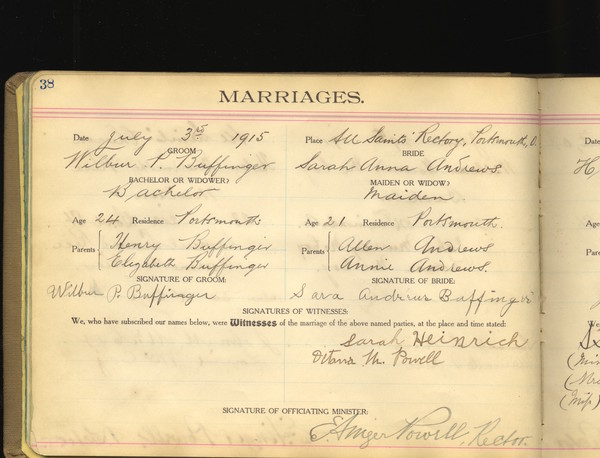 38
MARRIAGES.
Date July 3rd 1915 Place All Saints' Rectory, Portsmouth, O.
GROOM BRIDE
Wilbur P. Buffinger Sarah Anna Andrews.
BACHELOR OR WIDOWER? MAIDEN OR WIDOW?
Bachelor Maiden
Age 24 Residence Portsmouth Age 21 Residence Portsmouth
Parents Henry Buffinger Parents Allen Andrews
Elizabeth Buffinger Annie Andrews.
SIGNATURE OF GROOM: SIGNATURE OF BRIDE:
Wilbur P. Buffinger Sara Andrews Buffinger
SIGNATURES OF WITNESSES:
We, who have subscribed our names below, were Witnesses of the marriage of the above named parties, at the place and time stated:
Sarah Heinrich
M. Powell
SIGNATURE OF OFFICIATING MINISTER:
E. Ainger Powell, Rector.
Date
Age
Parents
We
(Mrs